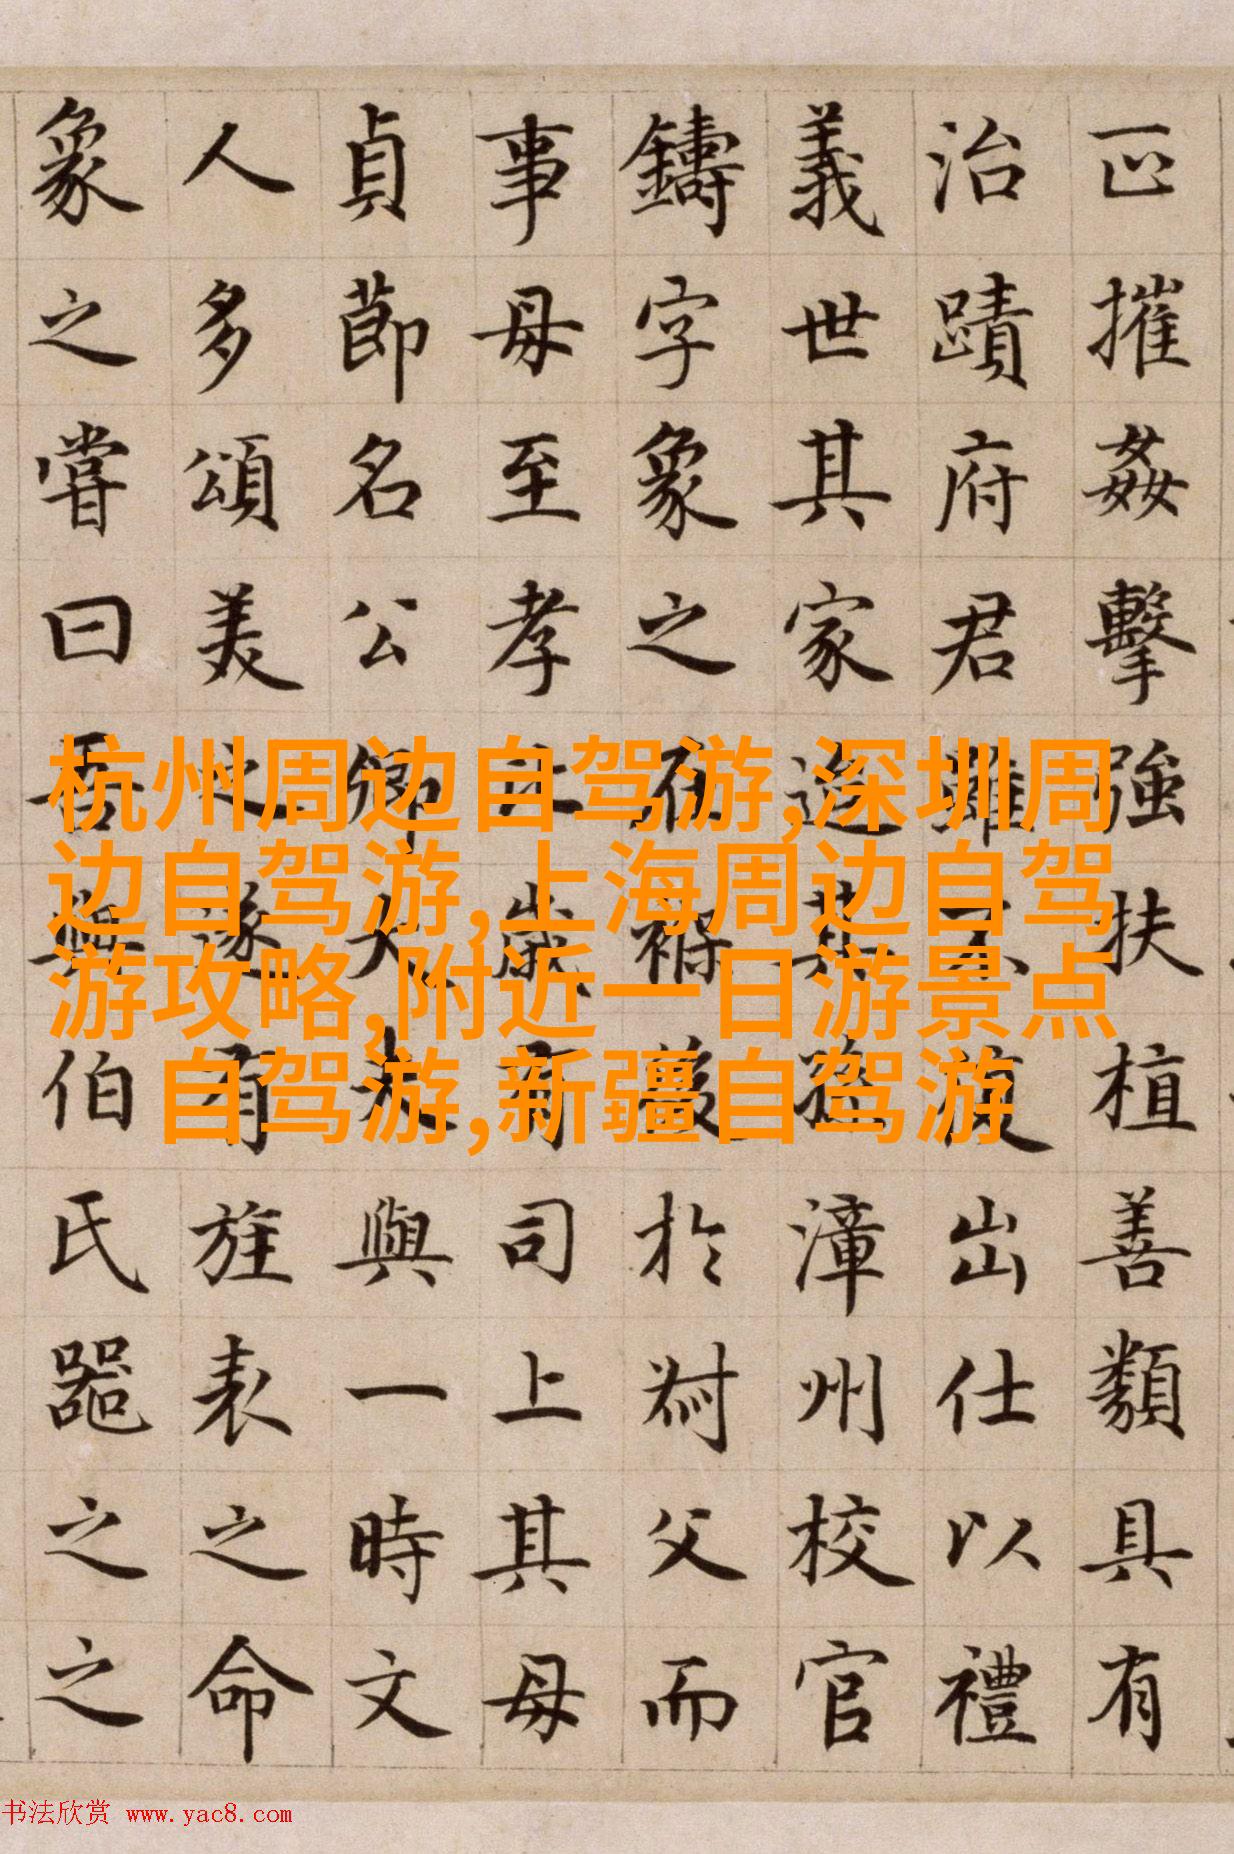 摧姦擊強扶植善類具有
治蹟府君雖不復出仕以禮
義世其家迨其漳州校官
鑄字象之在褓於父而
事母至孝歲有司上其母
貞節名公卿大夫與一時文
人多頌美之遂有旌表之命
象之嘗曰吾伯氏噐之之
杭州周边自驾游,深圳周
边自驾游,上海周边自驾
游攻略,附近一日游景点
自驾游,新疆自驾游
书法欣赏 www.yac8.com